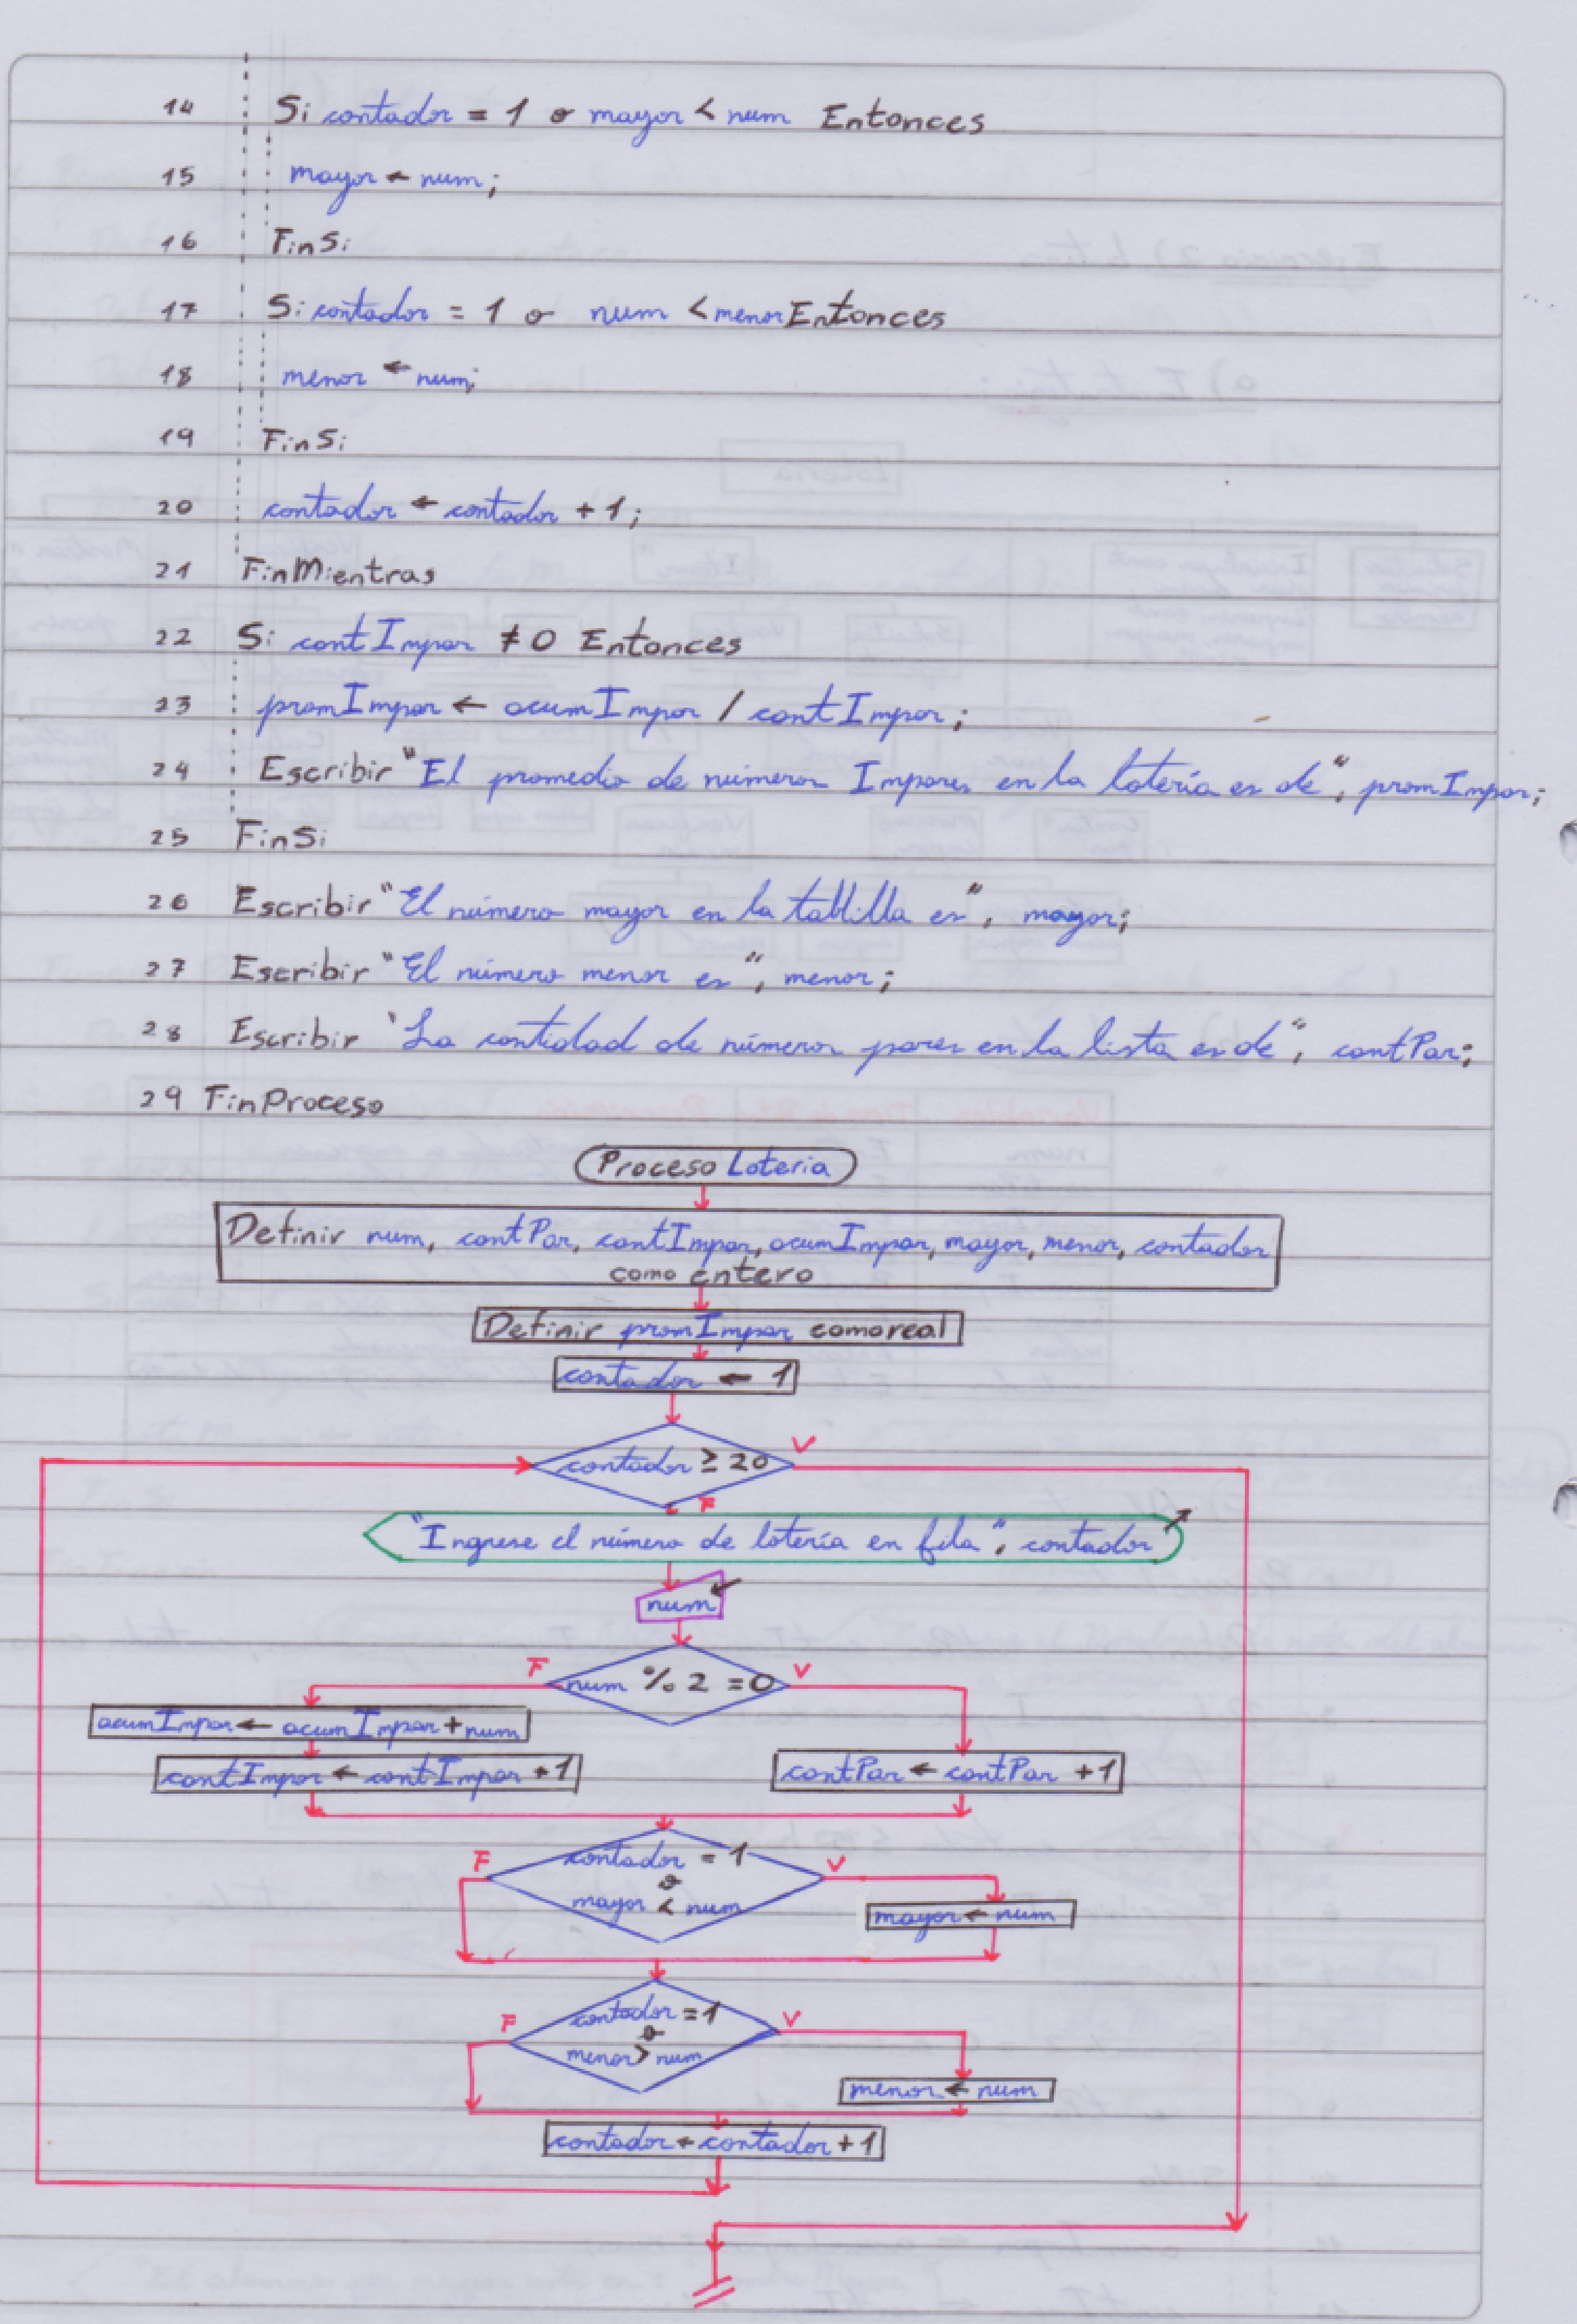 14 Si contador = 1 o mayor < num Entonces
15 mayor ← num;
16 FinSi
17 Si contador = 1 o num < menor Entonces
18 menor ← num;
19 FinSi
20 contador ← contador + 1;
21 FinMientras
22 Si contImpar ≠ 0 Entonces
23 promImpar ← acumImpar / contImpar;
24 Escribir "El promedio de números Impares en la lotería es de", promImpar;
25 FinSi
26 Escribir "El número mayor en la tablilla es", mayor;
27 Escribir "El número menor es", menor;
28 Escribir "La cantidad de números pares en la lista es de", contPar;
29 FinProceso
Proceso Loteria
Definir num, contPar, contImpar, acumImpar, mayor, menor, contador
como entero
Definir promImpar como real
contador ← 1
contador ≥ 20 V
F
"Ingrese el número de lotería en fila", contador
num
F num % 2 = 0 V
acumImpar ← acumImpar + num
contImpar ← contImpar + 1 contPar ← contPar + 1
F contador = 1 V
o
mayor < num mayor ← num
F contador = 1 V
o
menor > num
menor ← num
contador ← contador + 1